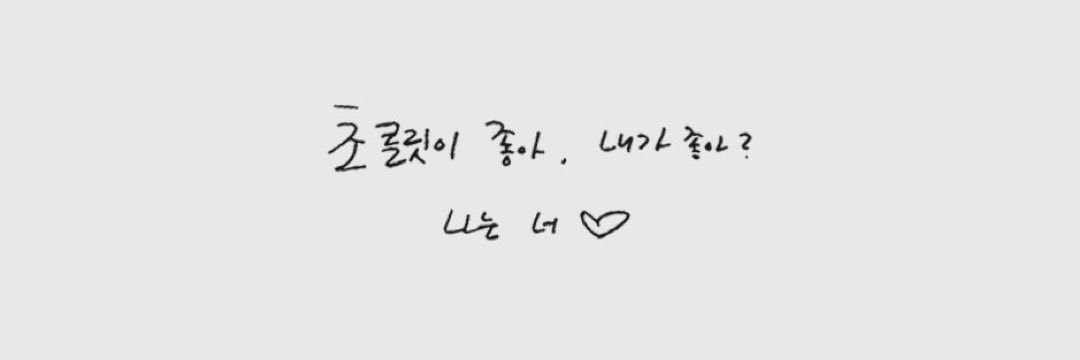 초콜릿이 좋아, 내가 좋아?
나는 너 ♡